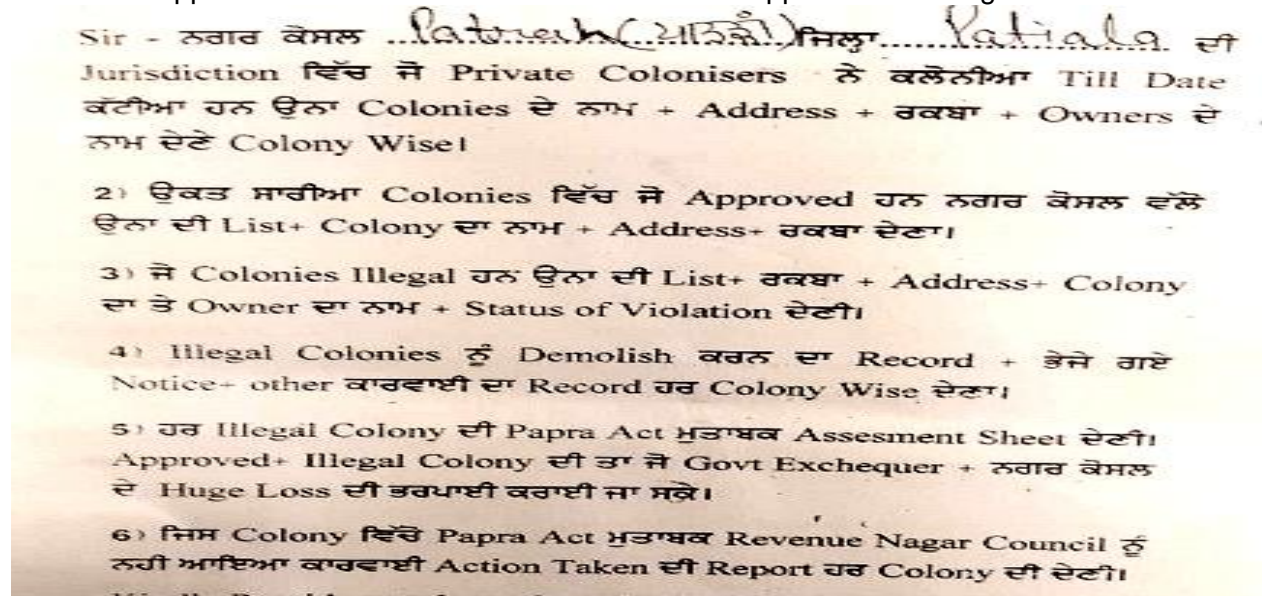 Sir - ਨਗਰ ਕੋਸਲ ........(ਪਾਤੜਾਂ) ਜਿਲ੍ਹਾ ....... Patiala ਦੀ
Jurisdiction ਵਿੱਚ ਜੋ Private Colonisers ਨੇ ਕਲੋਨੀਆ Till Date
ਕੱਟੀਆ ਹਨ ਉਨਾ Colonies ਦੇ ਨਾਮ + Address + ਰਕਬਾ + Owners ਦੇ
ਨਾਮ ਦੇਣੇ Colony Wise।
2) ਉਕਤ ਸਾਰੀਆ Colonies ਵਿੱਚ ਜੋ Approved ਹਨ ਨਗਰ ਕੋਸਲ ਵੱਲੋ
ਉਨਾ ਦੀ List+ Colony ਦਾ ਨਾਮ + Address+ ਰਕਬਾ ਦੇਣਾ।
3) ਜੋ Colonies Illegal ਹਨ ਉਨਾ ਦੀ List+ ਰਕਬਾ + Address+ Colony
ਦਾ ਤੇ Owner ਦਾ ਨਾਮ + Status of Violation ਦੇਣੀ।
4) Illegal Colonies ਨੂੰ Demolish ਕਰਨ ਦਾ Record + ਭੇਜੇ ਗਏ
Notice+ other ਕਾਰਵਾਈ ਦਾ Record ਹਰ Colony Wise ਦੇਣਾ।
5) ਹਰ Illegal Colony ਦੀ Papra Act ਮੁਤਾਬਕ Assesment Sheet ਦੇਣੀ।
Approved+ Illegal Colony ਦੀ ਤਾ ਜੋ Govt Exchequer + ਨਗਰ ਕੋਸਲ
ਦੇ Huge Loss ਦੀ ਭਰਪਾਈ ਕਰਾਈ ਜਾ ਸਕੇ।
6) ਜਿਸ Colony ਵਿੱਚੋ Papra Act ਮੁਤਾਬਕ Revenue Nagar Council ਨੂੰ
ਨਹੀ ਆਇਆ ਕਾਰਵਾਈ Action Taken ਦੀ Report ਹਰ Colony ਦੀ ਦੇਣੀ।